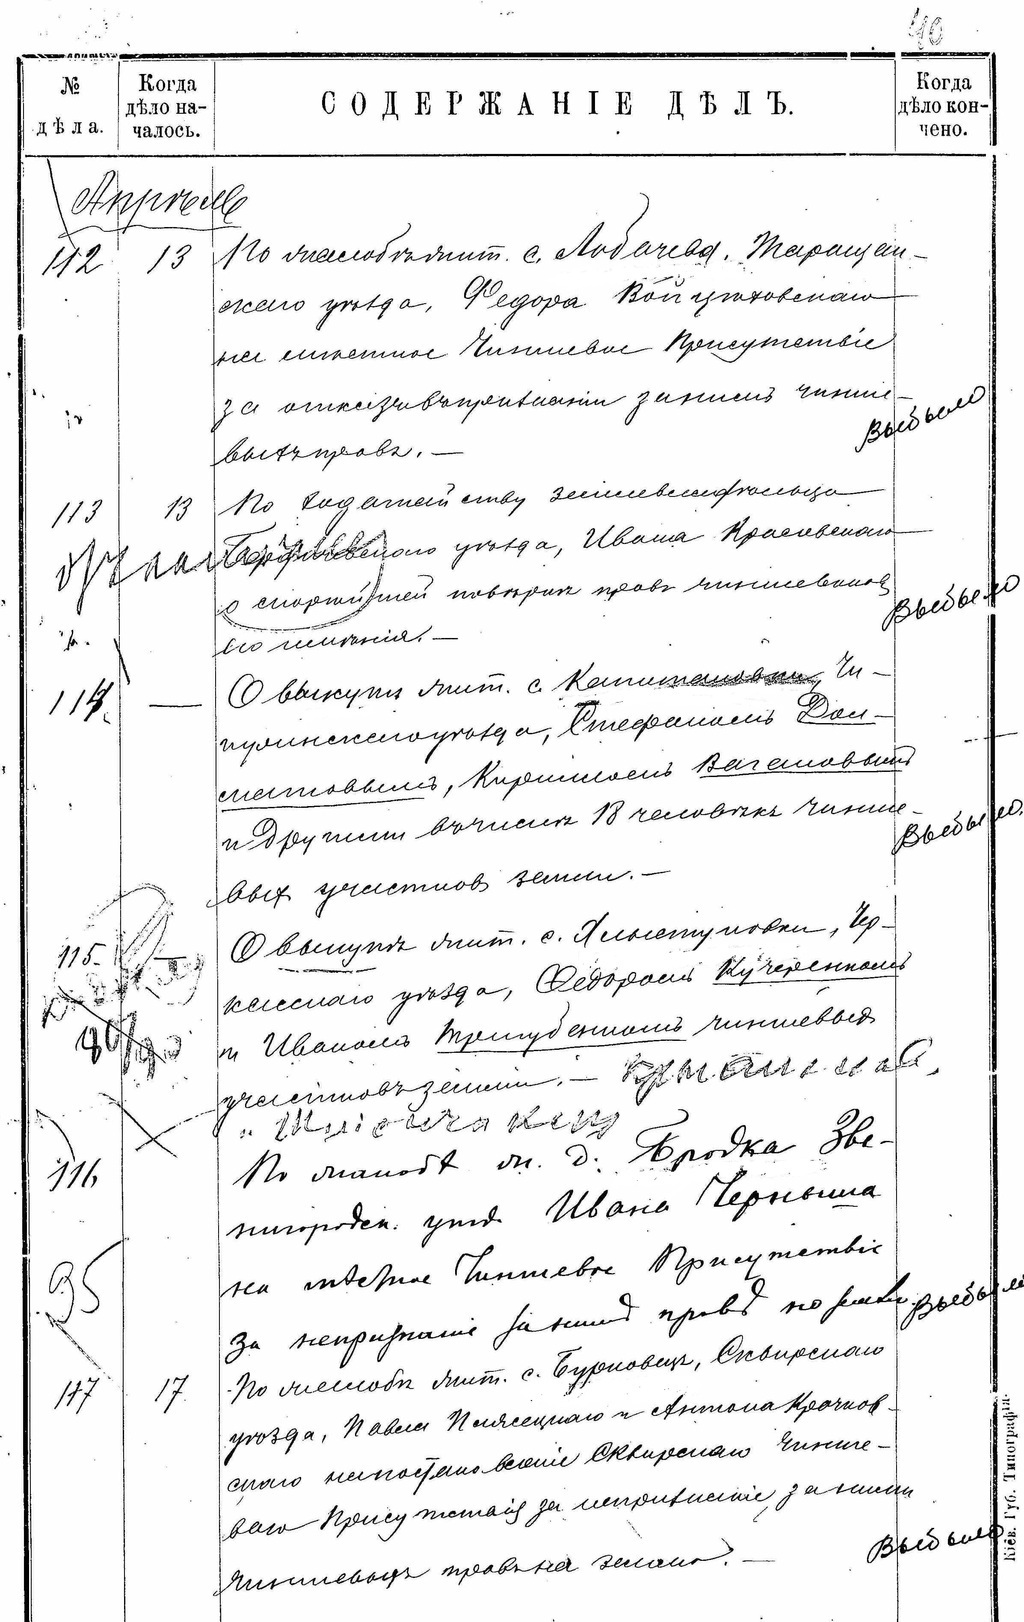 40
№ дѣла.
Когда дѣло началось.
СОДЕРЖАНІЕ ДѢЛЪ.
Когда дѣло кончено.
Апрель
112 13 По жалобѣ жит. с. Лобачева, Таращан-
скаго уѣзда, Федора Войцеховскаго
на мѣстное Чиншевое Присутствіе
за отказъ въ признаніи за нимъ чинше-
выхъ правъ. —
Выбыло
113 13 По ходатайству землевладѣльца
уѣзда, Ивана Красовскаго
о повѣркѣ правъ чиншевиковъ
его имѣнія. —
Выбыло
114. — О выкупѣ жит. с. Капитановки, Чи-
гиринскаго уѣзда, Стефаномъ
Кирилломъ
и другими въ числѣ 13 человѣкъ чинше-
выхъ участковъ земли. —
Выбыло.
115. — О выкупѣ жит. с. Хлыступовки, Чер-
касскаго уѣзда, Федоромъ Кучеренкомъ
и Иваномъ Тригубенкомъ чиншевыхъ
участковъ земли. —
116 По жалобѣ ж. д. Бродка Зве-
нигородск. уѣзд. Ивана Черныша
на мѣстное Чиншевое Присутствіе
за непризнаніе за нимъ правъ на землю.
Выбыло
95
117 17. По жалобѣ жит. с. Бурковецъ, Сквирскаго
уѣзда, Павла Плясецкаго и Антона Крочков-
скаго на постановленіе Сквирскаго Чинше-
ваго Присутствія за непризнаніе за ними
чиншевыхъ правъ на землю. —
Выбыло
Кіев. Губ. Типографія.